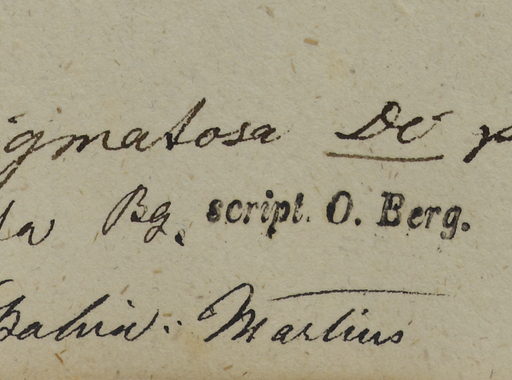 igmatosa DC
la Bg. script. O. Berg.
Bahia. Martius